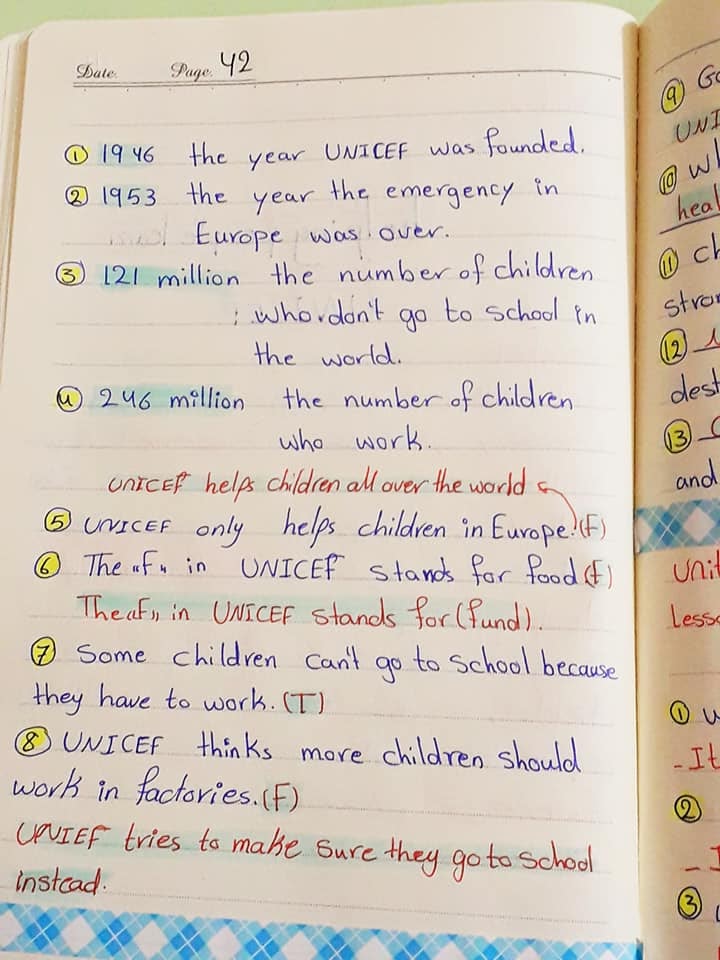 Date. Page. 42
① 1946 the year UNICEF was founded.
② 1953 the year the emergency in
Europe was over.
③ 121 million the number of children
who don't go to school in
the world.
④ 246 million the number of children
who work.
UNICEF helps children all over the world
⑤ UNICEF only helps children in Europe. (F)
⑥ The "F" in UNICEF stands for food (F)
The "F" in UNICEF stands for (fund).
⑦ Some children can't go to school because
they have to work. (T)
⑧ UNICEF thinks more children should
work in factories. (F)
UNIEF tries to make sure they go to school
instead.
⑨
⑩
⑪
⑫
⑬
and
①
②
③